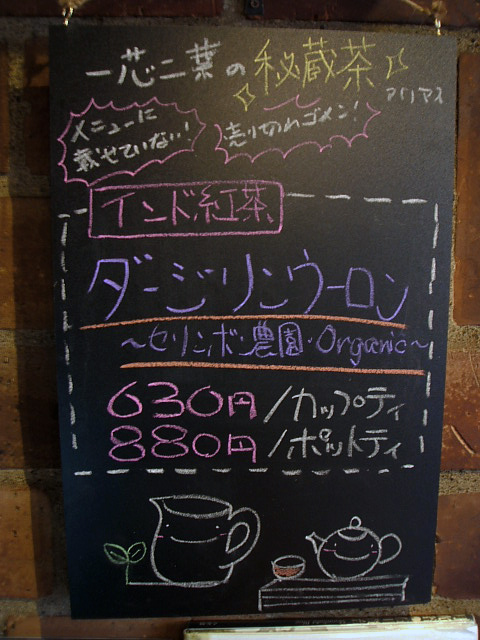 一芯二葉の秘蔵茶
アリマス
メニューに
載せていない!
売り切れゴメン!
インド紅茶
ダージリンウーロン
~セリンボン農園・Organic~
630円/カップティ
880円/ポットティ